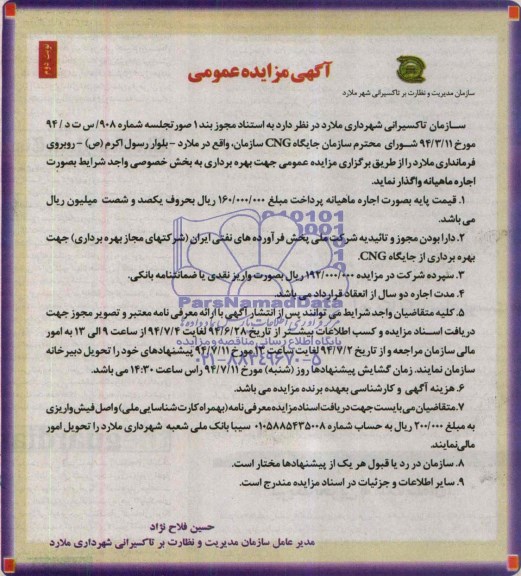 نوبت دوم
آگهی مزایده عمومی
سازمان مدیریت و نظارت بر تاکسیرانی شهر ملارد
سازمان تاکسیرانی شهرداری ملارد در نظر دارد به استناد مجوز بند ۱ صورتجلسه شماره ۹۰۸/ س ت د / ۹۴
مورخ ۹۴/۳/۱۱ شورای محترم سازمان جایگاه CNG سازمان، واقع در ملارد - بلوار رسول اکرم (ص) - روبروی
فرمانداری ملارد را از طریق برگزاری مزایده عمومی جهت بهره برداری به بخش خصوصی واجد شرایط بصورت
اجاره ماهیانه واگذار نماید.
۱. قیمت پایه بصورت اجاره ماهیانه پرداخت مبلغ ۱۶۰/۰۰۰/۰۰۰ ریال بحروف یکصد و شصت میلیون ریال
می باشد.
۲. دارا بودن مجوز و تائیدیه شرکت ملی پخش فرآورده های نفتی ایران (شرکتهای مجاز بهره برداری) جهت
بهره برداری از جایگاه CNG.
۳. سپرده شرکت در مزایده ۱۹۲/۰۰۰/۰۰۰ ریال بصورت واریز نقدی یا ضمانتنامه بانکی.
۴. مدت اجاره دو سال از انعقاد قرارداد می باشد.
۵. کلیه متقاضیان واجد شرایط می توانند پس از انتشار آگهی با ارائه معرفی نامه معتبر و تصویر مجوز جهت
دریافت اسناد مزایده و کسب اطلاعات بیشتر از تاریخ ۹۴/۶/۲۸ لغایت ۹۴/۷/۴ از ساعت ۹ الی ۱۳ به امور
مالی سازمان مراجعه و از تاریخ ۹۴/۷/۲ لغایت ساعت ۱۳ مورخ ۹۴/۷/۱۱ پیشنهادهای خود را تحویل دبیرخانه
سازمان نمایند. زمان گشایش پیشنهادها روز (شنبه) مورخ ۹۴/۷/۱۱ راس ساعت ۱۴:۳۰ می باشد.
۶. هزینه آگهی و کارشناسی بعهده برنده مزایده می باشد.
۷. متقاضیان می بایست جهت دریافت اسناد مزایده معرفی نامه (بهمراه کارت شناسایی ملی) و اصل فیش واریزی
به مبلغ ۲۰۰/۰۰۰ ریال به حساب شماره ۰۱۰۵۸۸۵۴۳۵۰۰۸ سیبا بانک ملی شعبه شهرداری ملارد را تحویل امور
مالی نمایند.
۸. سازمان در رد یا قبول هر یک از پیشنهادها مختار است.
۹. سایر اطلاعات و جزئیات در اسناد مزایده مندرج است.
حسین فلاح نژاد
مدیر عامل سازمان مدیریت و نظارت بر تاکسیرانی شهرداری ملارد
ParsNamadData
پایگاه اطلاع رسانی مناقصه و مزایده
۰۲۱-۸۸۳۴۹۶۷۰-۵